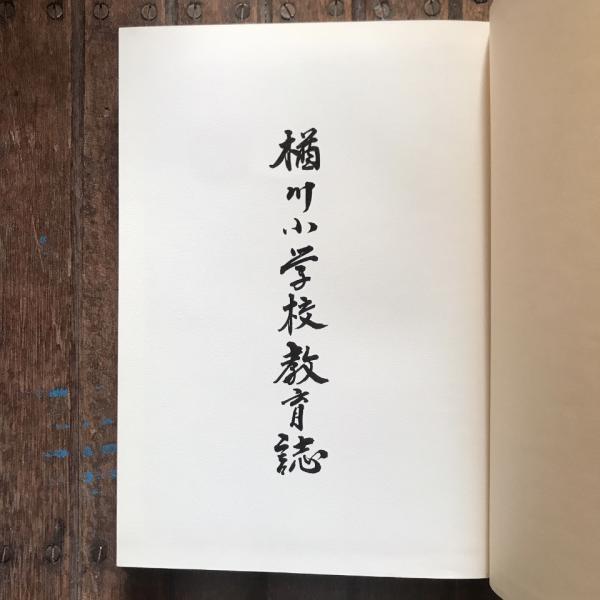 楢川小学校教育誌